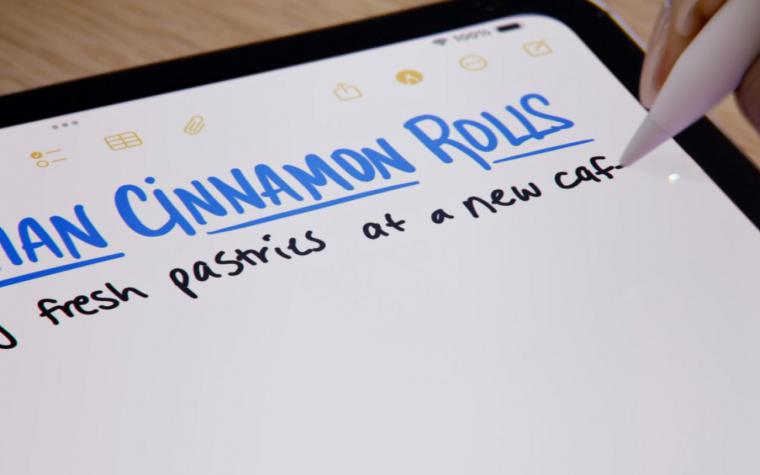 100%
CINNAMON ROLLS
fresh pastries at a new caf